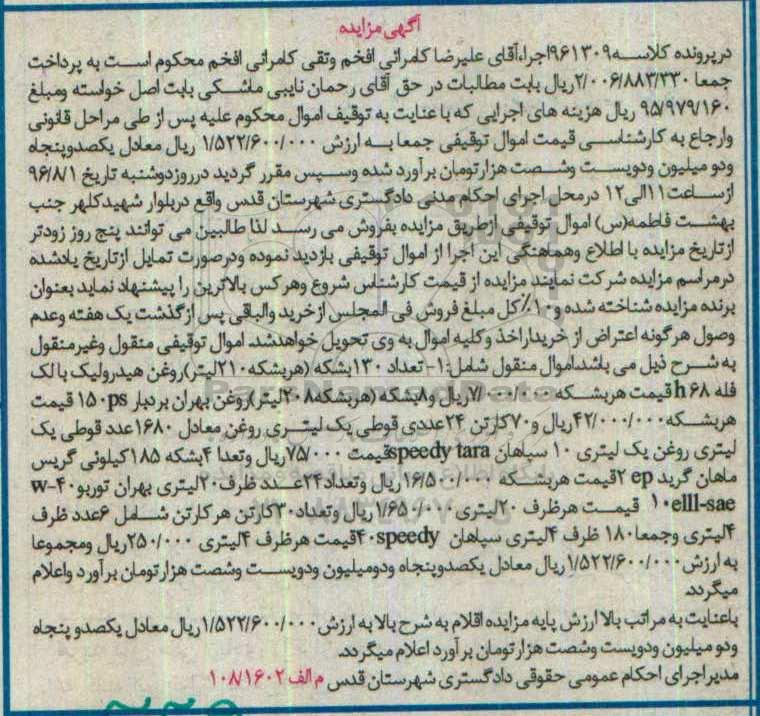 آگهی مزایده
درپرونده کلاسه ۹۶۱۳۰۹اجرا،آقای علیرضا کامرانی افخم وتقی کامرانی افخم محکوم است به پرداخت
جمعا ۲/۰۰۶/۸۸۳/۳۳۰ریال بابت مطالبات در حق آقای رحمان نایبی ماشکی بابت اصل خواسته ومبلغ
۹۵/۹۷۹/۱۶۰ ریال هزینه های اجرایی که با عنایت به توقیف اموال محکوم علیه پس از طی مراحل قانونی
وارجاع به کارشناسی قیمت اموال توقیفی جمعا به ارزش ۱/۵۲۲/۶۰۰/۰۰۰ ریال معادل یکصدوپنجاه
ودو میلیون ودویست وشصت هزارتومان برآورد شده وسپس مقرر گردید درروزدوشنبه تاریخ ۹۶/۸/۱
ازساعت۱۱الی۱۲ درمحل اجرای احکام مدنی دادگستری شهرستان قدس واقع دربلوار شهیدکلهر جنب
بهشت فاطمه(س) اموال توقیفی ازطریق مزایده بفروش می رسد لذا طالبین می توانند پنج روز زودتر
ازتاریخ مزایده با اطلاع وهماهنگی این اجرا از اموال توقیفی بازدید نموده ودرصورت تمایل ازتاریخ یادشده
درمراسم مزایده شرکت نمایند مزایده از قیمت کارشناس شروع وهرکس بالاترین را پیشنهاد نماید بعنوان
برنده مزایده شناخته شده و۱۰٪کل مبلغ فروش فی المجلس ازخرید والباقی پس ازگذشت یک هفته وعدم
وصول هرگونه اعتراض از خریداراخذ وکلیه اموال به وی تحویل خواهدشد. اموال توقیفی منقول وغیرمنقول
به شرح ذیل می باشد.اموال منقول شامل:۱- تعداد ۱۳۰بشکه (هربشکه۲۱۰لیتر)روغن هیدرولیک بالک
فله h۶۸ قیمت هربشکه ۷/۰۰۰/۰۰۰ریال و۸بشکه (هربشکه۲۰۸لیتر)روغن بهران بردبار ۱۵۰ps قیمت
هربشکه۴۲/۰۰۰/۰۰۰ریال و۷۰کارتن ۲۴عددی قوطی یک لیتری روغن معادل ۱۶۸۰عدد قوطی یک
لیتری روغن یک لیتری ۱۰ سپاهان speedy taraقیمت ۷۵/۰۰۰ریال وتعدا ۴بشکه ۱۸۵کیلوئی گریس
ماهان گرید ep ۲قیمت هربشکه ۱۶/۵۰۰/۰۰۰ریال وتعداد۲۴عدد ظرف۲۰لیتری بهران توربو۴۰-w
۱۰elll-sae قیمت هرظرف ۲۰لیتری۱/۶۵۰/۰۰۰ریال وتعداد۳۰کارتن هرکارتن شامل ۶عدد ظرف
۴لیتری وجمعا۱۸۰ ظرف ۴لیتری سپاهان ۴۰speedyقیمت هرظرف ۴لیتری ۲۵۰/۰۰۰ریال ومجموعا
به ارزش۱/۵۲۲/۶۰۰/۰۰۰ریال معادل یکصدوپنجاه ودومیلیون ودویست وشصت هزارتومان برآورد واعلام
میگردد.
باعنایت به مراتب بالا ارزش پایه مزایده اقلام به شرح بالا به ارزش۱/۵۲۲/۶۰۰/۰۰۰ریال معادل یکصدو پنجاه
ودو میلیون ودویست وشصت هزارتومان برآورد اعلام میگردد.
مدیراجرای احکام عمومی حقوقی دادگستری شهرستان قدس م الف ۱۰۸/۱۶۰۲
ParsNamadData